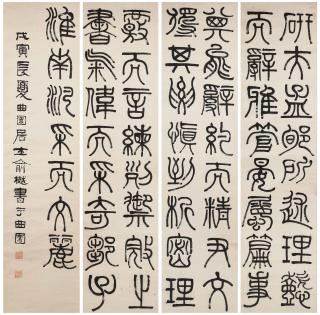 研夫孟郇所述理懿
而辭雅管晏屬篇事
其能辭約而精尹文
得其要慎到析密理
覈而言練列禦寇之
書氣偉而采奇鄒子
淮南汎采而文麗
戊寅長夏曲園居士俞樾書于曲園